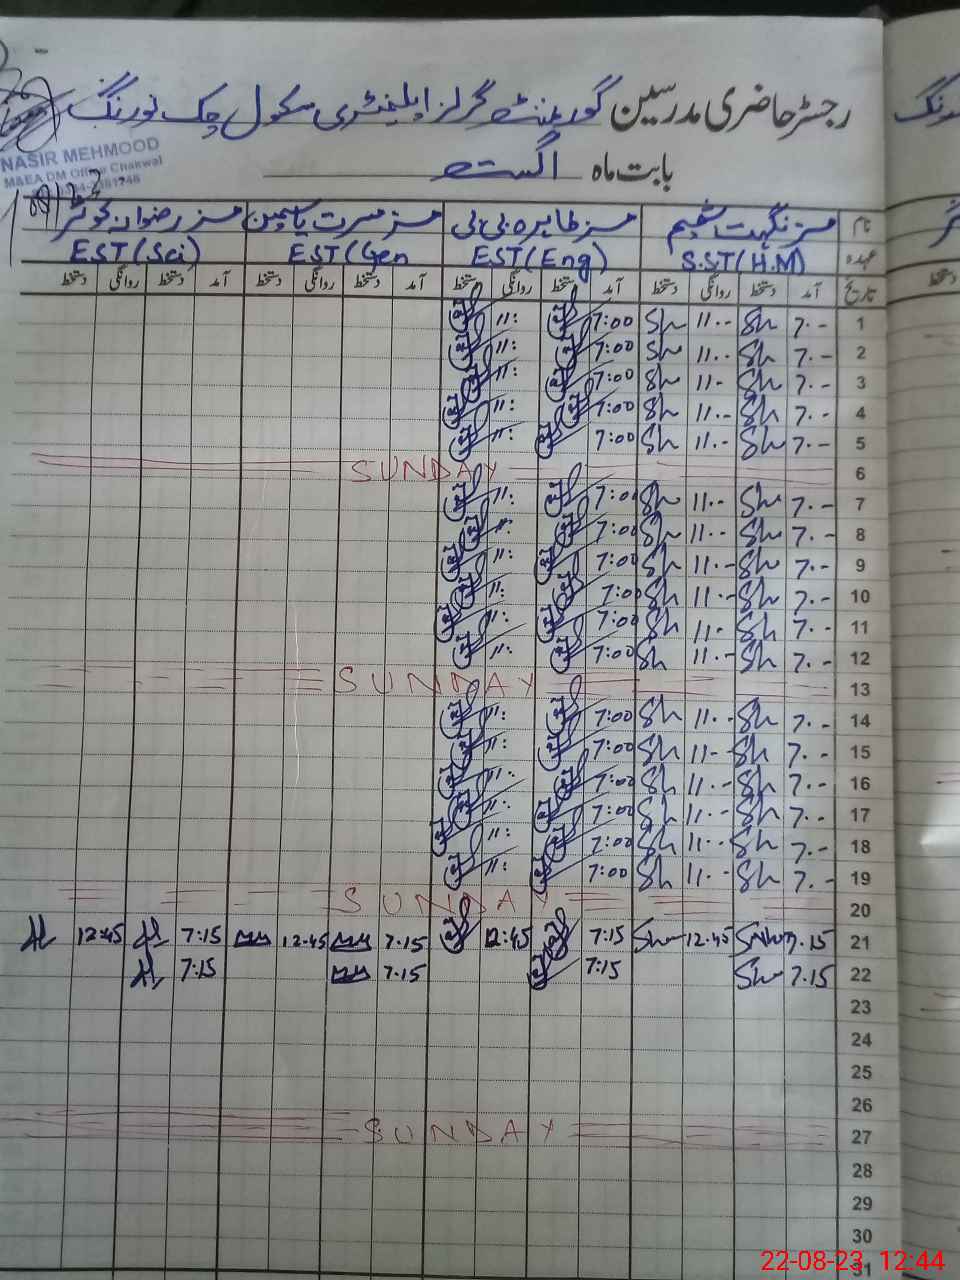 رجسٹر حاضری مدرسین گورنمنٹ گرلز ایلیمنٹری سکول چک نورنگ
بابت ماہ اگست
NASIR MEHMOOD
M&EA DM Office Chakwal
نام مسز نگہت شمیم مسز طاہرہ بی بی مسز مسرت یاسمین مسز رضوانہ کوثر
عہدہ S.ST(H.M) EST(Eng) EST(Gen EST(Sci)
تاریخ آمد دستخط روانگی دستخط آمد دستخط روانگی دستخط آمد دستخط روانگی دستخط آمد دستخط روانگی دستخط
1 7.00 Sh 11.00 Sh 7:00 11:
2 7.00 Sh 11.00 Sh 7:00 11:
3 7.00 Sh 11.00 Sh 7:00 11:
4 7.00 Sh 11.00 Sh 7:00 11:
5 7.00 Sh 11.00 Sh 7:00 11:
6 SUNDAY
7 7.00 Sh 11.00 Sh 7:00 11:
8 7.00 Sh 11.00 Sh 7:00
9 7.00 Sh 11.00 Sh 7:00 11:
10 7.00 Sh 11.00 Sh 7:00 11:
11 7.00 Sh 11.00 Sh 7:00 11:
12 7.00 Sh 11.00 Sh 7:00 11:
13 SUNDAY
14 7.00 Sh 11.00 Sh 7:00 11:
15 7.00 Sh 11.00 Sh 7:00 11:
16 7.00 Sh 11.00 Sh 7:00 11:
17 7.00 Sh 11.00 Sh 7:00 11:
18 7.00 Sh 11.00 Sh 7:00 11:
19 7.00 Sh 11.00 Sh 7:00 11:
20 SUNDAY
21 7.15 12.45 7:15 12:45 7.15 12.45 7:15 12:45
22 7.15 7:15 7.15 7:15
23
24
25
26
27 SUNDAY
28
29
30
31
22-08-23 12:44